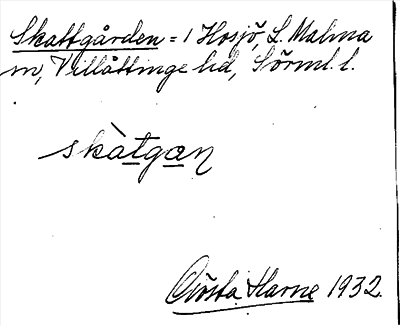 Skattgården = 1 Hosjö, L. Malma
sn, Villåttinge hd, Sörml. l.
skàtgan
Gösta Harne 1932.